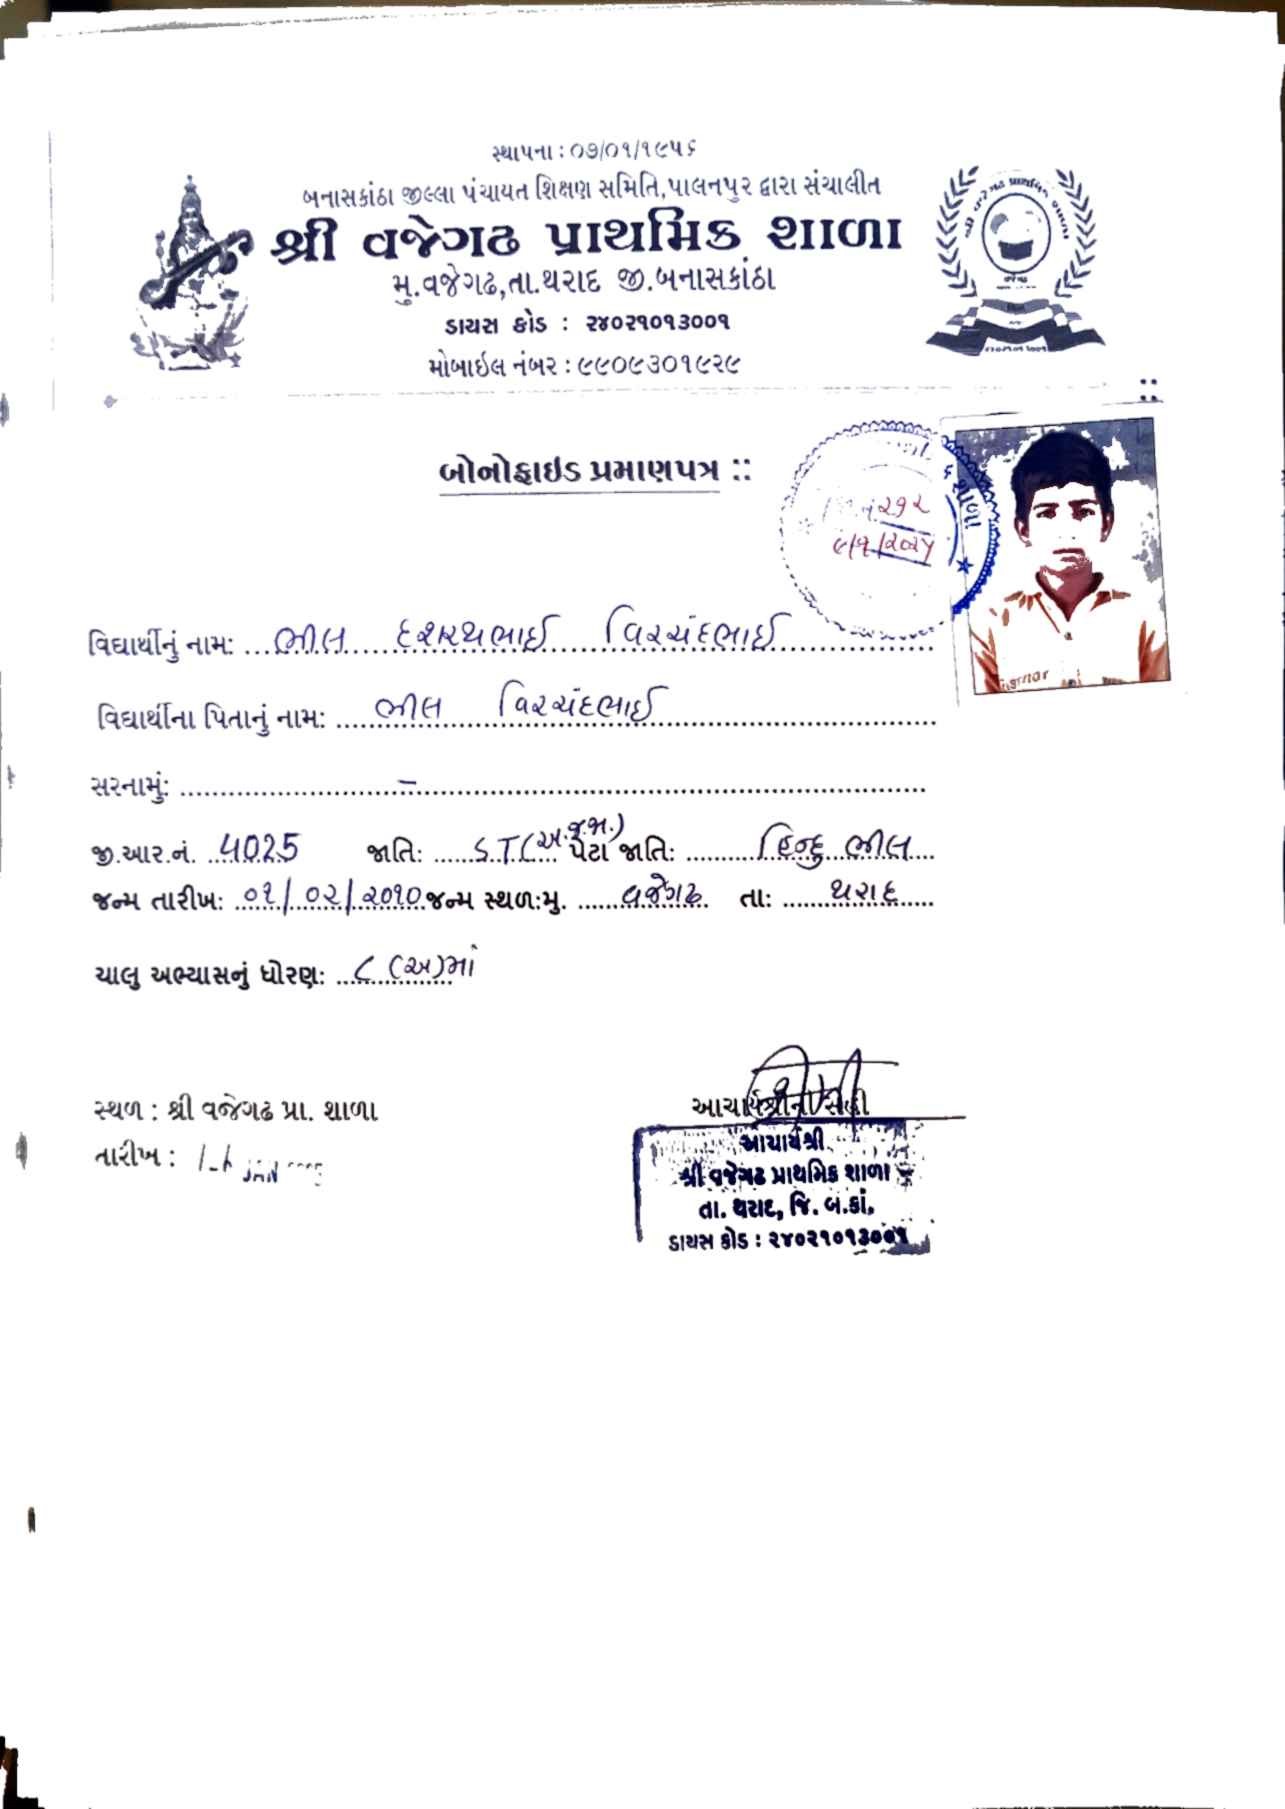 સ્થાપના : ૦૭/૦૧/૧૯૫૬
બનાસકાંઠા જીલ્લા પંચાયત શિક્ષણ સમિતિ,પાલનપુર દ્વારા સંચાલીત
શ્રી વજેગઢ પ્રાથમિક શાળા
મુ.વજેગઢ,તા.થરાદ જી.બનાસકાંઠા
ડાયસ કોડ : ૨૪૦૨૧૦૧૩૦૦૧
મોબાઇલ નંબર : ૯૯૦૯૩૦૧૯૨૯
::
બોનોફાઇડ પ્રમાણપત્ર ::
શાળા
૨૧૨
૯/૧/૨૦૨૫
વિદ્યાર્થીનું નામ: ભીલ દશરથભાઈ વિરચંદભાઈ
વિદ્યાર્થીના પિતાનું નામ: ભીલ વિરચંદભાઈ
સરનામું: –
જી.આર.નં. 4025 જાતિ: ST (અ.જ.જા.) પેટા જાતિ: હિન્દુ ભીલ
જન્મ તારીખ: ૦૧/૦૨/૨૦૧૦ જન્મ સ્થળ:મુ. વજેગઢ તા: થરાદ
ચાલુ અભ્યાસનું ધોરણ: ૮ (અ)માં
સ્થળ : શ્રી વજેગઢ પ્રા. શાળા
આચાર્યશ્રીની સહી
તારીખ : JAN
આચાર્યશ્રી
શ્રી વજેગઢ પ્રાથમિક શાળા
તા. થરાદ, જિ. બ.કાં.
ડાયસ કોડ : ૨૪૦૨૧૦૧૩૦૦૧